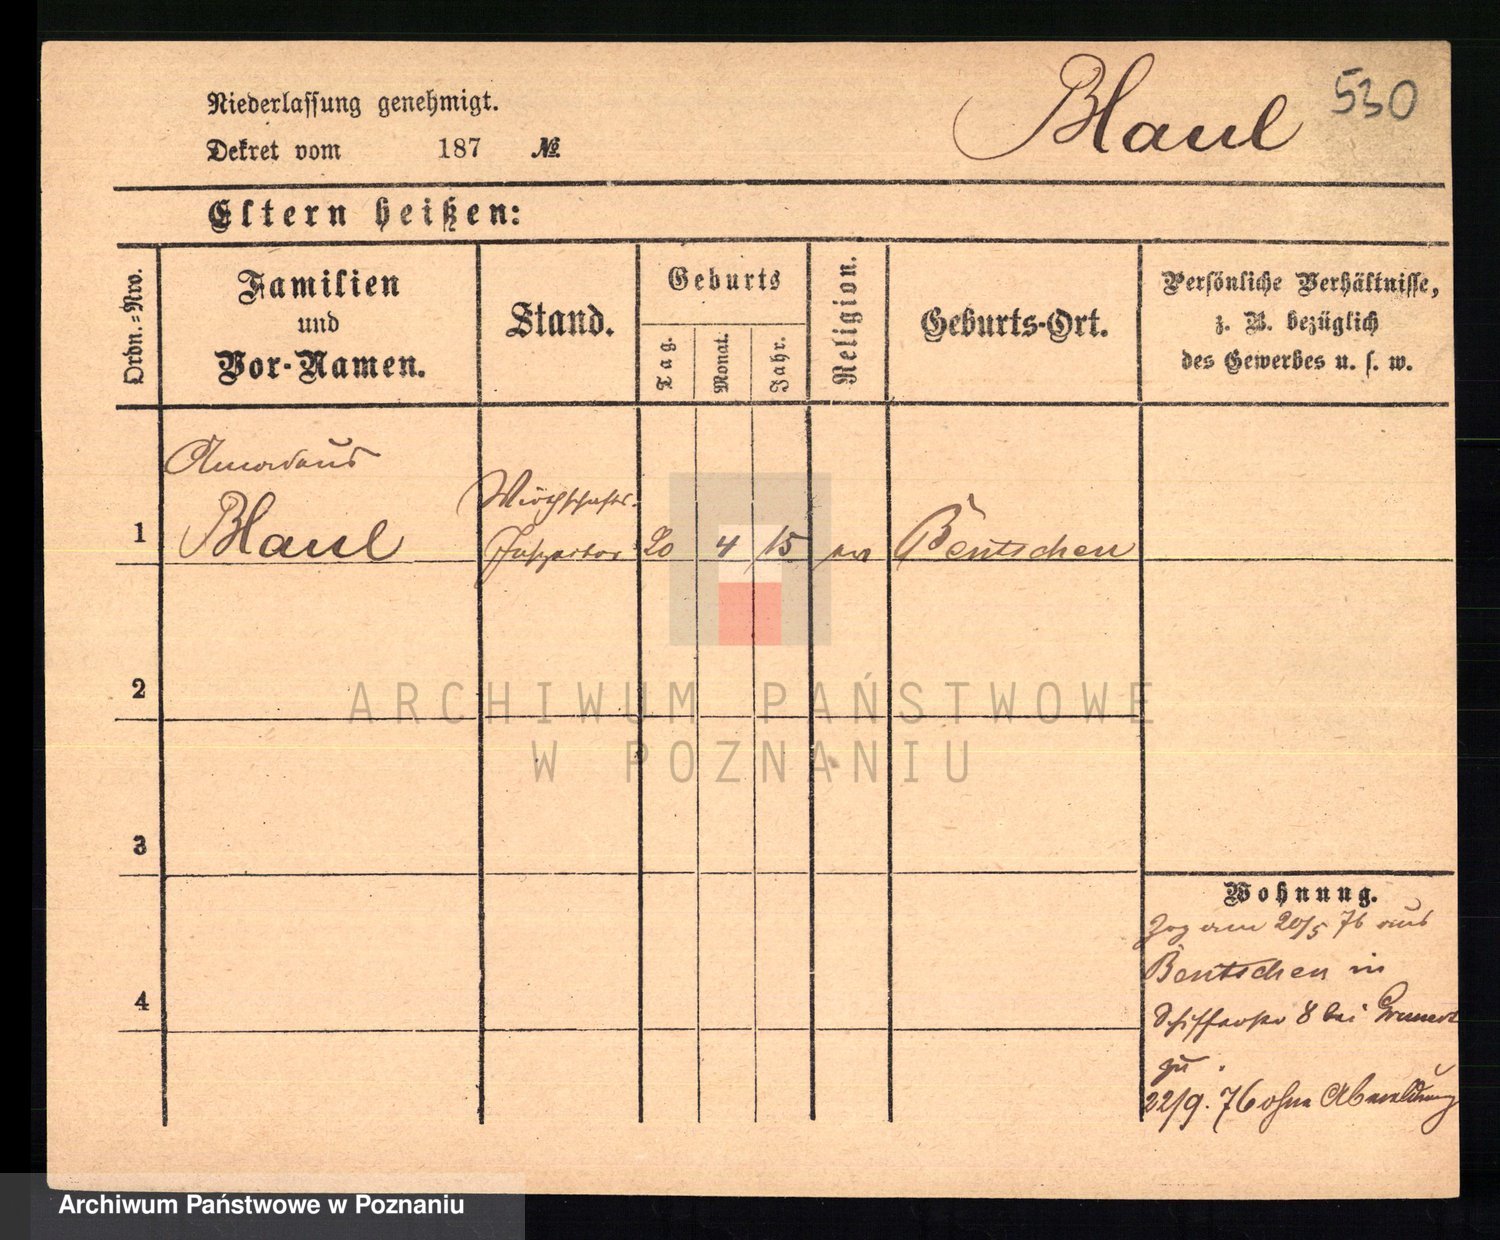 530
Blaul
Niederlassung genehmigt.
Dekret vom 187 №
Eltern heißen:
Ordn.-Nro.
Familien
und
Vor-Namen.
Stand.
Geburts
Tag.
Monat.
Jahr.
Religion.
Geburts-Ort.
Persönliche Verhältnisse,
z. B. bezüglich
des Gewerbes u. s. w.
Amadeus
Wirthschafts-
1 Blaul Inspector 20 4 15 ev Bentschen
2
3
4
Wohnung.
Zog am 20/5 76 aus
Bentschen in
Schifferstr 8 bei
zu.
22/9. 76 ohne Abmeldung
ARCHIWUM PAŃSTWOWE
W POZNANIU
Archiwum Państwowe w Poznaniu